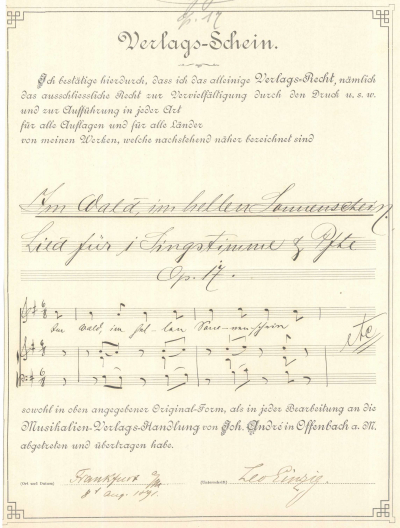 Op. 17
Verlags-Schein.
Ich bestätige hierdurch, dass ich das alleinige Verlags-Recht, nämlich
das ausschliessliche Recht zur Vervielfältigung durch den Druck u. s. w.
und zur Aufführung in jeder Art
für alle Auflagen und für alle Länder
von meinen Werken, welche nachstehend näher bezeichnet sind
Im Wald, im hellen Sonnenschein.
Lied für 1 Singstimme & Pfte
Op. 17.
Im Wald, im hel-len Sonn-nenschein
etc
sowohl in oben angegebener Original-Form, als in jeder Bearbeitung an die
Musikalien-Verlags-Handlung von Joh. André in Offenbach a. M.
abgetreten und übertragen habe.
(Ort und Datum) Frankfurt a/M (Unterschrift) Leo Einzig.
8t Aug. 1891.